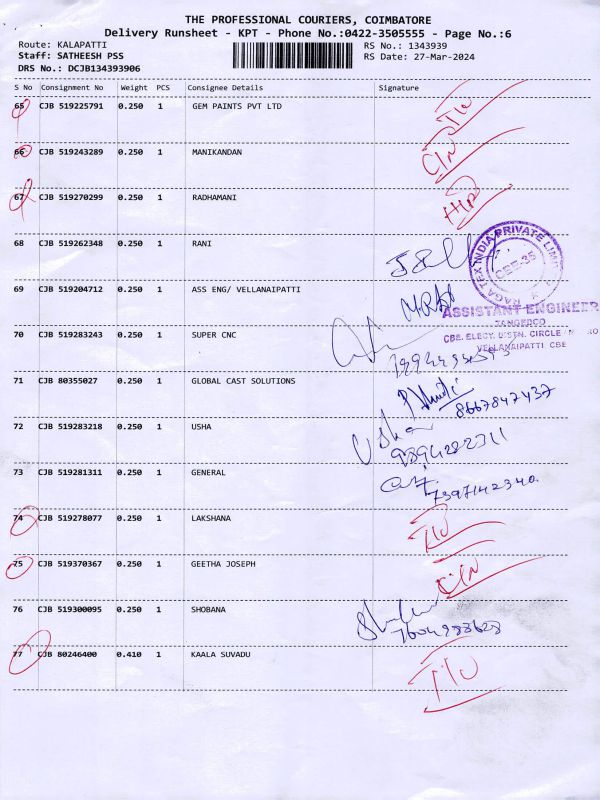 THE PROFESSIONAL COURIERS, COIMBATORE
Delivery Runsheet - KPT - Phone No.:0422-3505555 - Page No.:6
Route: KALAPATTI
RS No.: 1343939
Staff: SATHEESH PSS
RS Date: 27-Mar-2024
DRS No.: DCJB134393906
S No Consignment No Weight PCS Consignee Details Signature
65 CJB 519225791 0.250 1 GEM PAINTS PVT LTD
66 CJB 519243289 0.250 1 MANIKANDAN
67 CJB 519270299 0.250 1 RADHAMANI
68 CJB 519262348 0.250 1 RANI
RAGA TEX INDIA PRIVATE LIMITED
CBE-35
69 CJB 519204712 0.250 1 ASS ENG/ VELLANAIPATTI
ASSISTANT ENGINEER
TANGEDCO
CBE. ELECY. DISTN. CIRCLE / METRO
VELLANAIPATTI CBE
70 CJB 519283243 0.250 1 SUPER CNC
71 CJB 80355027 0.250 1 GLOBAL CAST SOLUTIONS
8667847437
72 CJB 519283218 0.250 1 USHA
Usha
9894282311
73 CJB 519281311 0.250 1 GENERAL
7397142340
74 CJB 519278077 0.250 1 LAKSHANA
75 CJB 519370367 0.250 1 GEETHA JOSEPH
76 CJB 519300095 0.250 1 SHOBANA
77 CJB 80246400 0.410 1 KAALA SUVADU